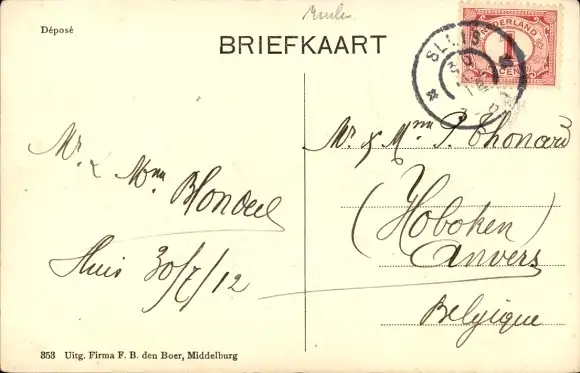 Déposé
BRIEFKAART
NEDERLAND
1
CENT
SLUIS
Mr & Mme Blondeel
Sluis 30/7/12
Mr & Mme P. Thonard
(Hoboken)
Anvers
Belgique
353 Uitg. Firma F. B. den Boer, Middelburg